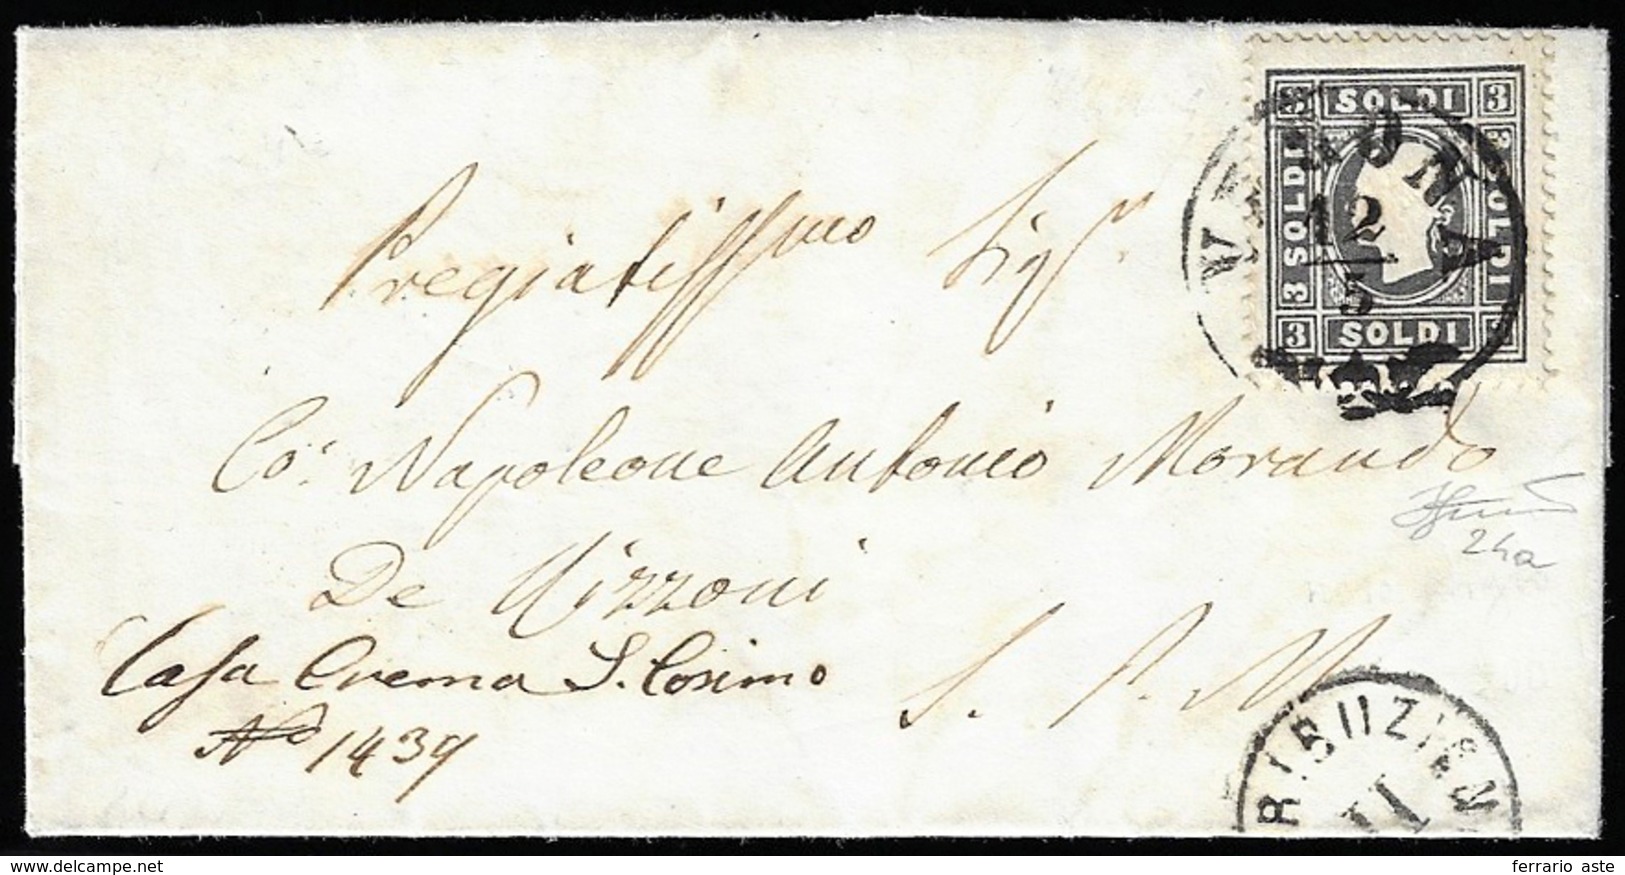 3 SOLDI 3
SOLDI
SOLDI
3
3 SOLDI 3
VERONA
12
5
Pregiatissimo Sigr.
Co. Napoleone Antonio Morando
De Rizzoni
Casa Crema S. Cosimo
No 1439
S. P. M.
24a
DISTRIBUZION
II
ferrario aste